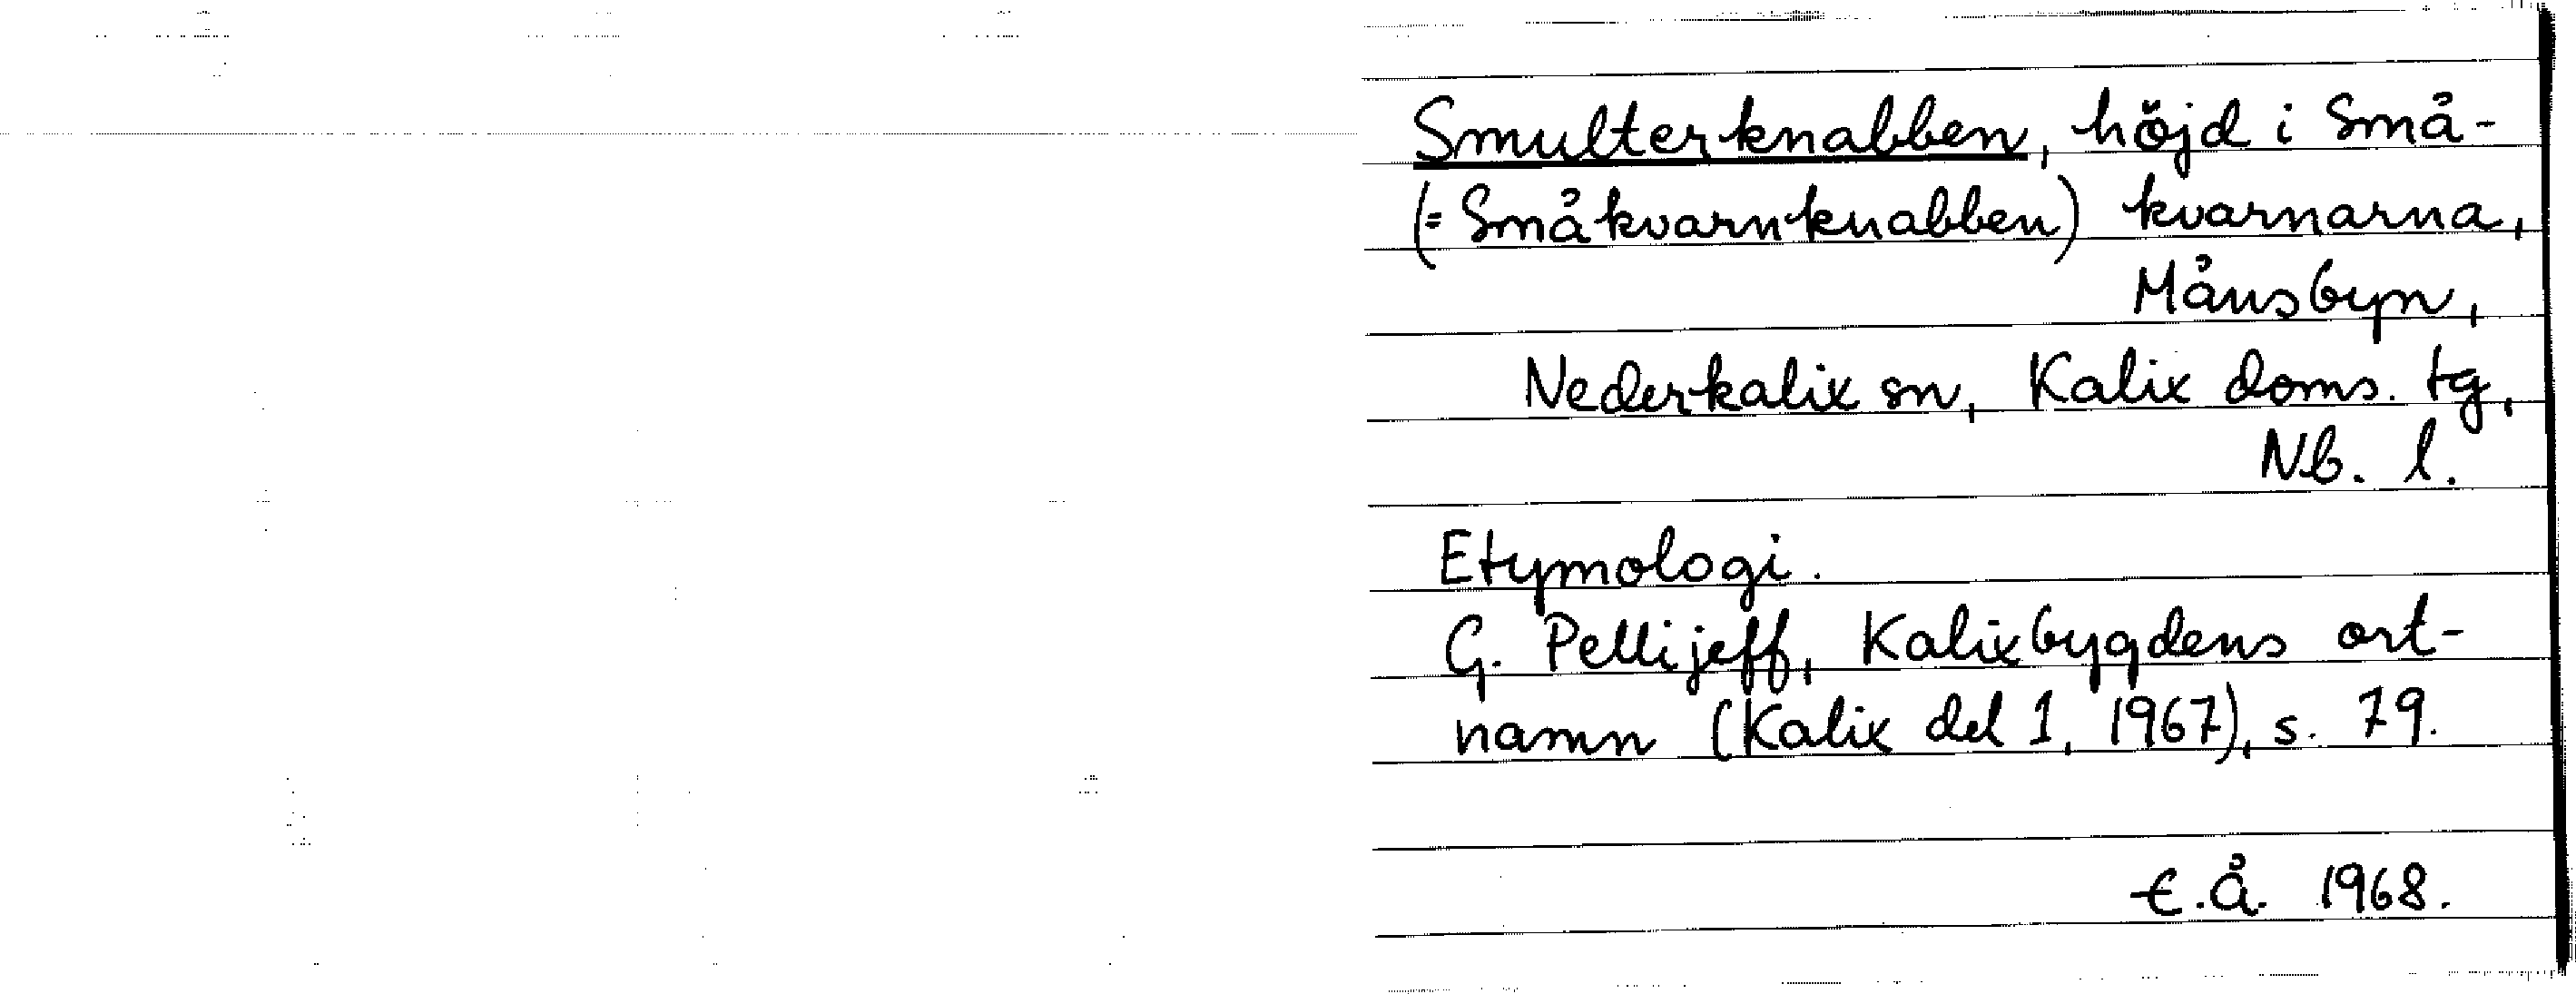 Smulterknabben, höjd i Små-
(= Småkvarnknabben) kvarnarna,
Månsbyn,
Nederkalix sn, Kalix doms. tg,
Nb. l.
Etymologi.
G. Pellijeff, Kalixbygdens ort-
namn (Kalix del 1, 1967), s. 79.
E.Å. 1968.